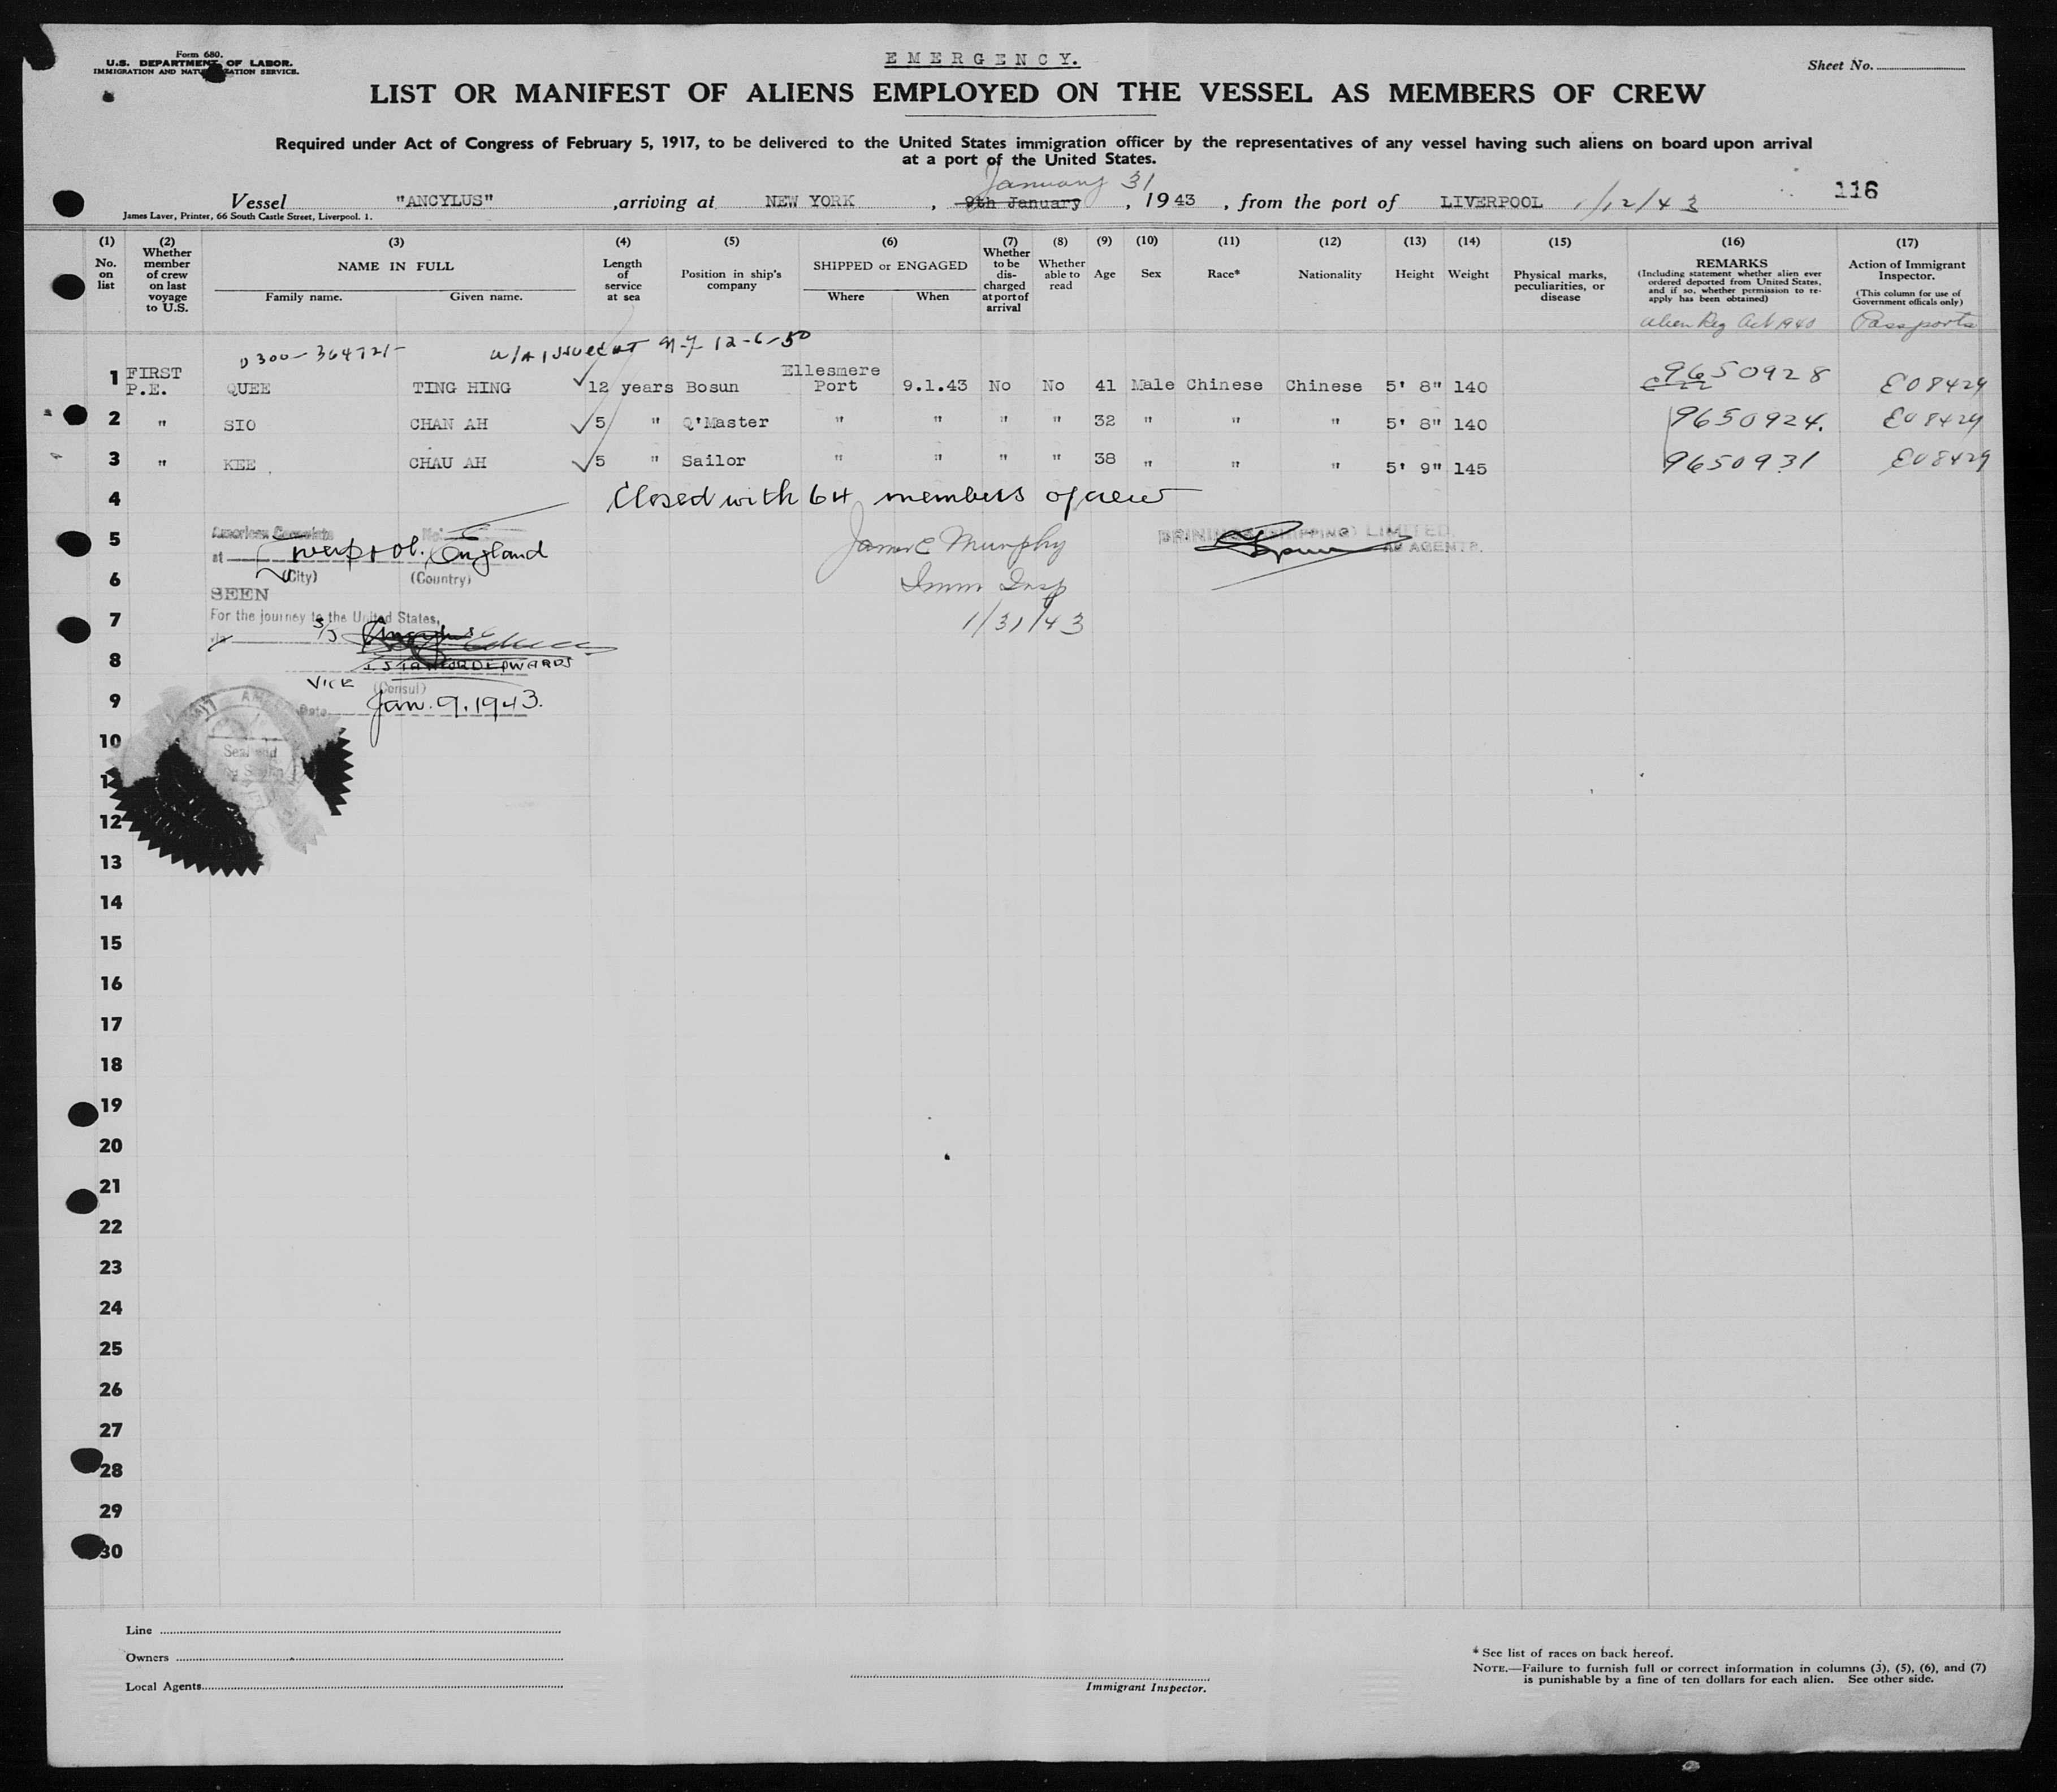 Form 680.
U.S. DEPARTMENT OF LABOR.
IMMIGRATION AND NATURALIZATION SERVICE.
EMERGENCY.
Sheet No.
LIST OR MANIFEST OF ALIENS EMPLOYED ON THE VESSEL AS MEMBERS OF CREW
Required under Act of Congress of February 5, 1917, to be delivered to the United States immigration officer by the representatives of any vessel having such aliens on board upon arrival
at a port of the United States.
January 31
Vessel "ANCYLUS" , arriving at NEW YORK , 9th January , 1943 , from the port of LIVERPOOL 1/12/43 116
James Laver, Printer, 66 South Castle Street, Liverpool. 1.
(1) No. on list (2) Whether member of crew on last voyage to U.S. (3) NAME IN FULL Family name. Given name. (4) Length of service at sea (5) Position in ship's company (6) SHIPPED or ENGAGED Where When (7) Whether to be discharged at port of arrival (8) Whether able to read (9) Age (10) Sex (11) Race* (12) Nationality (13) Height (14) Weight (15) Physical marks, peculiarities, or disease (16) REMARKS (Including statement whether alien ever ordered deported from United States, and if so, whether permission to re-apply has been obtained) (17) Action of Immigrant Inspector. (This column for use of Government officals only)
Alien Reg Act 1940 Passports
0300-364721- W/A issued at N.Y 12-6-50
1 FIRST P.E. QUEE TING HING 12 years Bosun Ellesmere Port 9.1.43 No No 41 Male Chinese Chinese 5' 8" 140 9650928 E08429
2 " SIO CHAN AH 5 " Q'Master " " " " 32 " " " 5' 8" 140 9650924. E08429
3 " KEE CHAU AH 5 " Sailor " " " " 38 " " " 5' 9" 145 9650931 E08429
4 Closed with 64 members of crew
5 American Consulate No.
at Liverpool, England
James C Murphy
(SHIPPING) LIMITED.
AS AGENTS.
6 (City) (Country)
Imm Insp
SEEN
7 For the journey to the United States,
1/31/43
via S/S Ancylus
8 EDWARDS
VICE (Consul)
9 Date Jan. 9. 1943.
10
11
12
13
14
15
16
17
18
19
20
21
22
23
24
25
26
27
28
29
30
Line
Owners
Local Agents
Immigrant Inspector.
* See list of races on back hereof.
NOTE.—Failure to furnish full or correct information in columns (3), (5), (6), and (7)
is punishable by a fine of ten dollars for each alien. See other side.